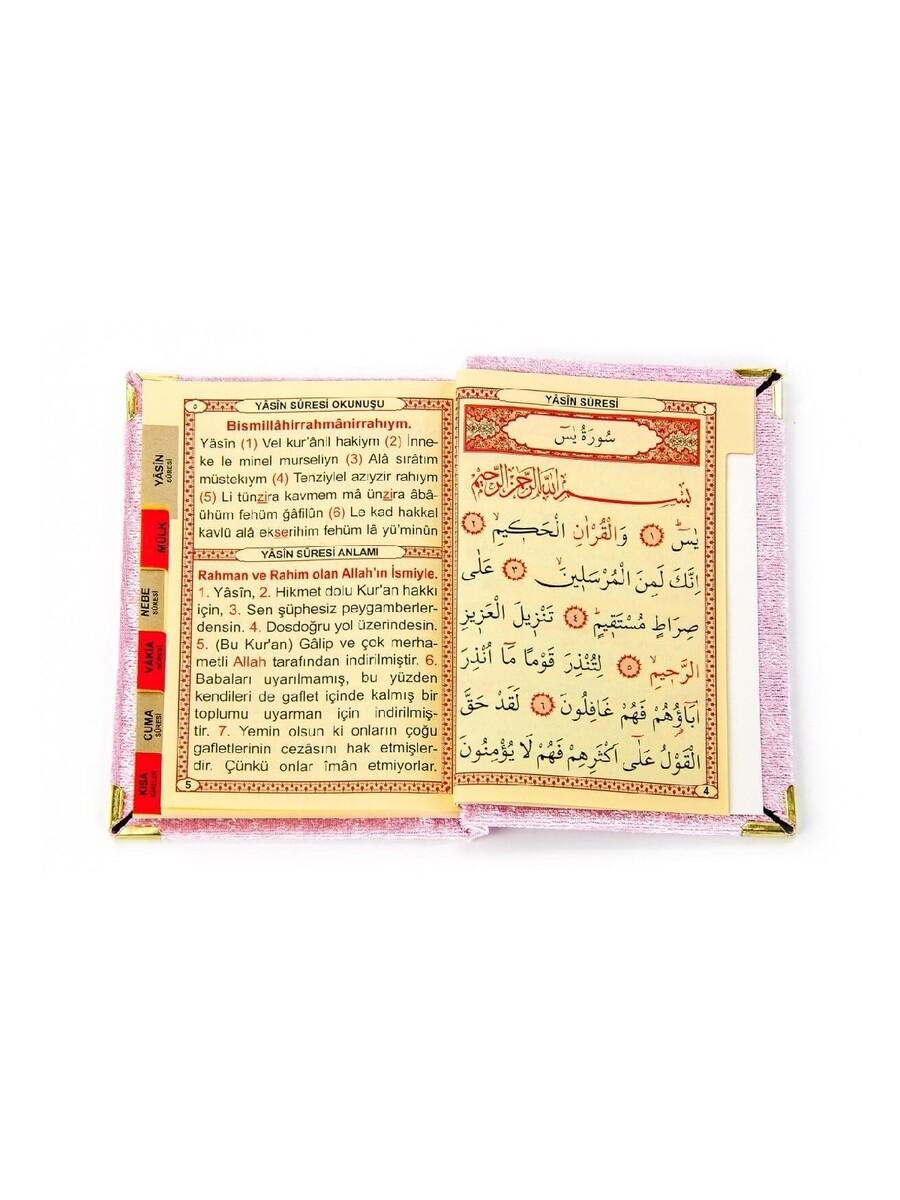 ٥
YÂSİN SÛRESİ OKUNUŞU
Bismillâhirrahmânirrahıym.
Yâsîn (1) Vel kur'ânil hakiym (2) İnne-
ke le minel murseliyn (3) Alâ sırâtım
müstekıym (4) Tenziylel aziyzir rahıym
(5) Li tünzira kavmem mâ ünzira âbâ-
ühüm fehüm ğafilûn (6) Le kad hakkal
kavlü alâ ekserihim fehüm lâ yü'minûn
YÂSİN SÛRESİ ANLAMI
Rahman ve Rahim olan Allah'ın İsmiyle.
1. Yâsîn, 2. Hikmet dolu Kur'an hakkı
için, 3. Sen şüphesiz peygamberler-
densin. 4. Dosdoğru yol üzerindesin.
5. (Bu Kur'an) Gâlip ve çok merha-
metli Allah tarafından indirilmiştir. 6.
Babaları uyarılmamış, bu yüzden
kendileri de gaflet içinde kalmış bir
toplumu uyarman için indirilmiş-
tir. 7. Yemin olsun ki onların çoğu
gafletlerinin cezâsını hak etmişler-
dir. Çünkü onlar îmân etmiyorlar.
5
YÂSİN SÛRESİ
MÜLK
NEBE SÛRESİ
VÂKIA SÛRESİ
CUMA SÛRESİ
KISA
YÂSİN SÛRESİ
٤
سُورَةُ يٰسٓ
بِسْمِ اللّٰهِ الرَّحْمٰنِ الرَّحِيمِ
يٰسٓ ﴿١﴾ وَالْقُرْاٰنِ الْحَكِيمِۙ ﴿٢﴾
اِنَّكَ لَمِنَ الْمُرْسَلِينَۙ ﴿٣﴾ عَلٰى
صِرَاطٍ مُسْتَقِيمٍۜ ﴿٤﴾ تَنْزِيلَ الْعَزِيزِ
الرَّحِيمِۙ ﴿٥﴾ لِتُنْذِرَ قَوْمًا مَٓا اُنْذِرَ
اٰبَٓاؤُ۬هُمْ فَهُمْ غَافِلُونَ ﴿٦﴾ لَقَدْ حَقَّ
الْقَوْلُ عَلٰٓى اَكْثَرِهِمْ فَهُمْ لَا يُؤْمِنُونَ
4